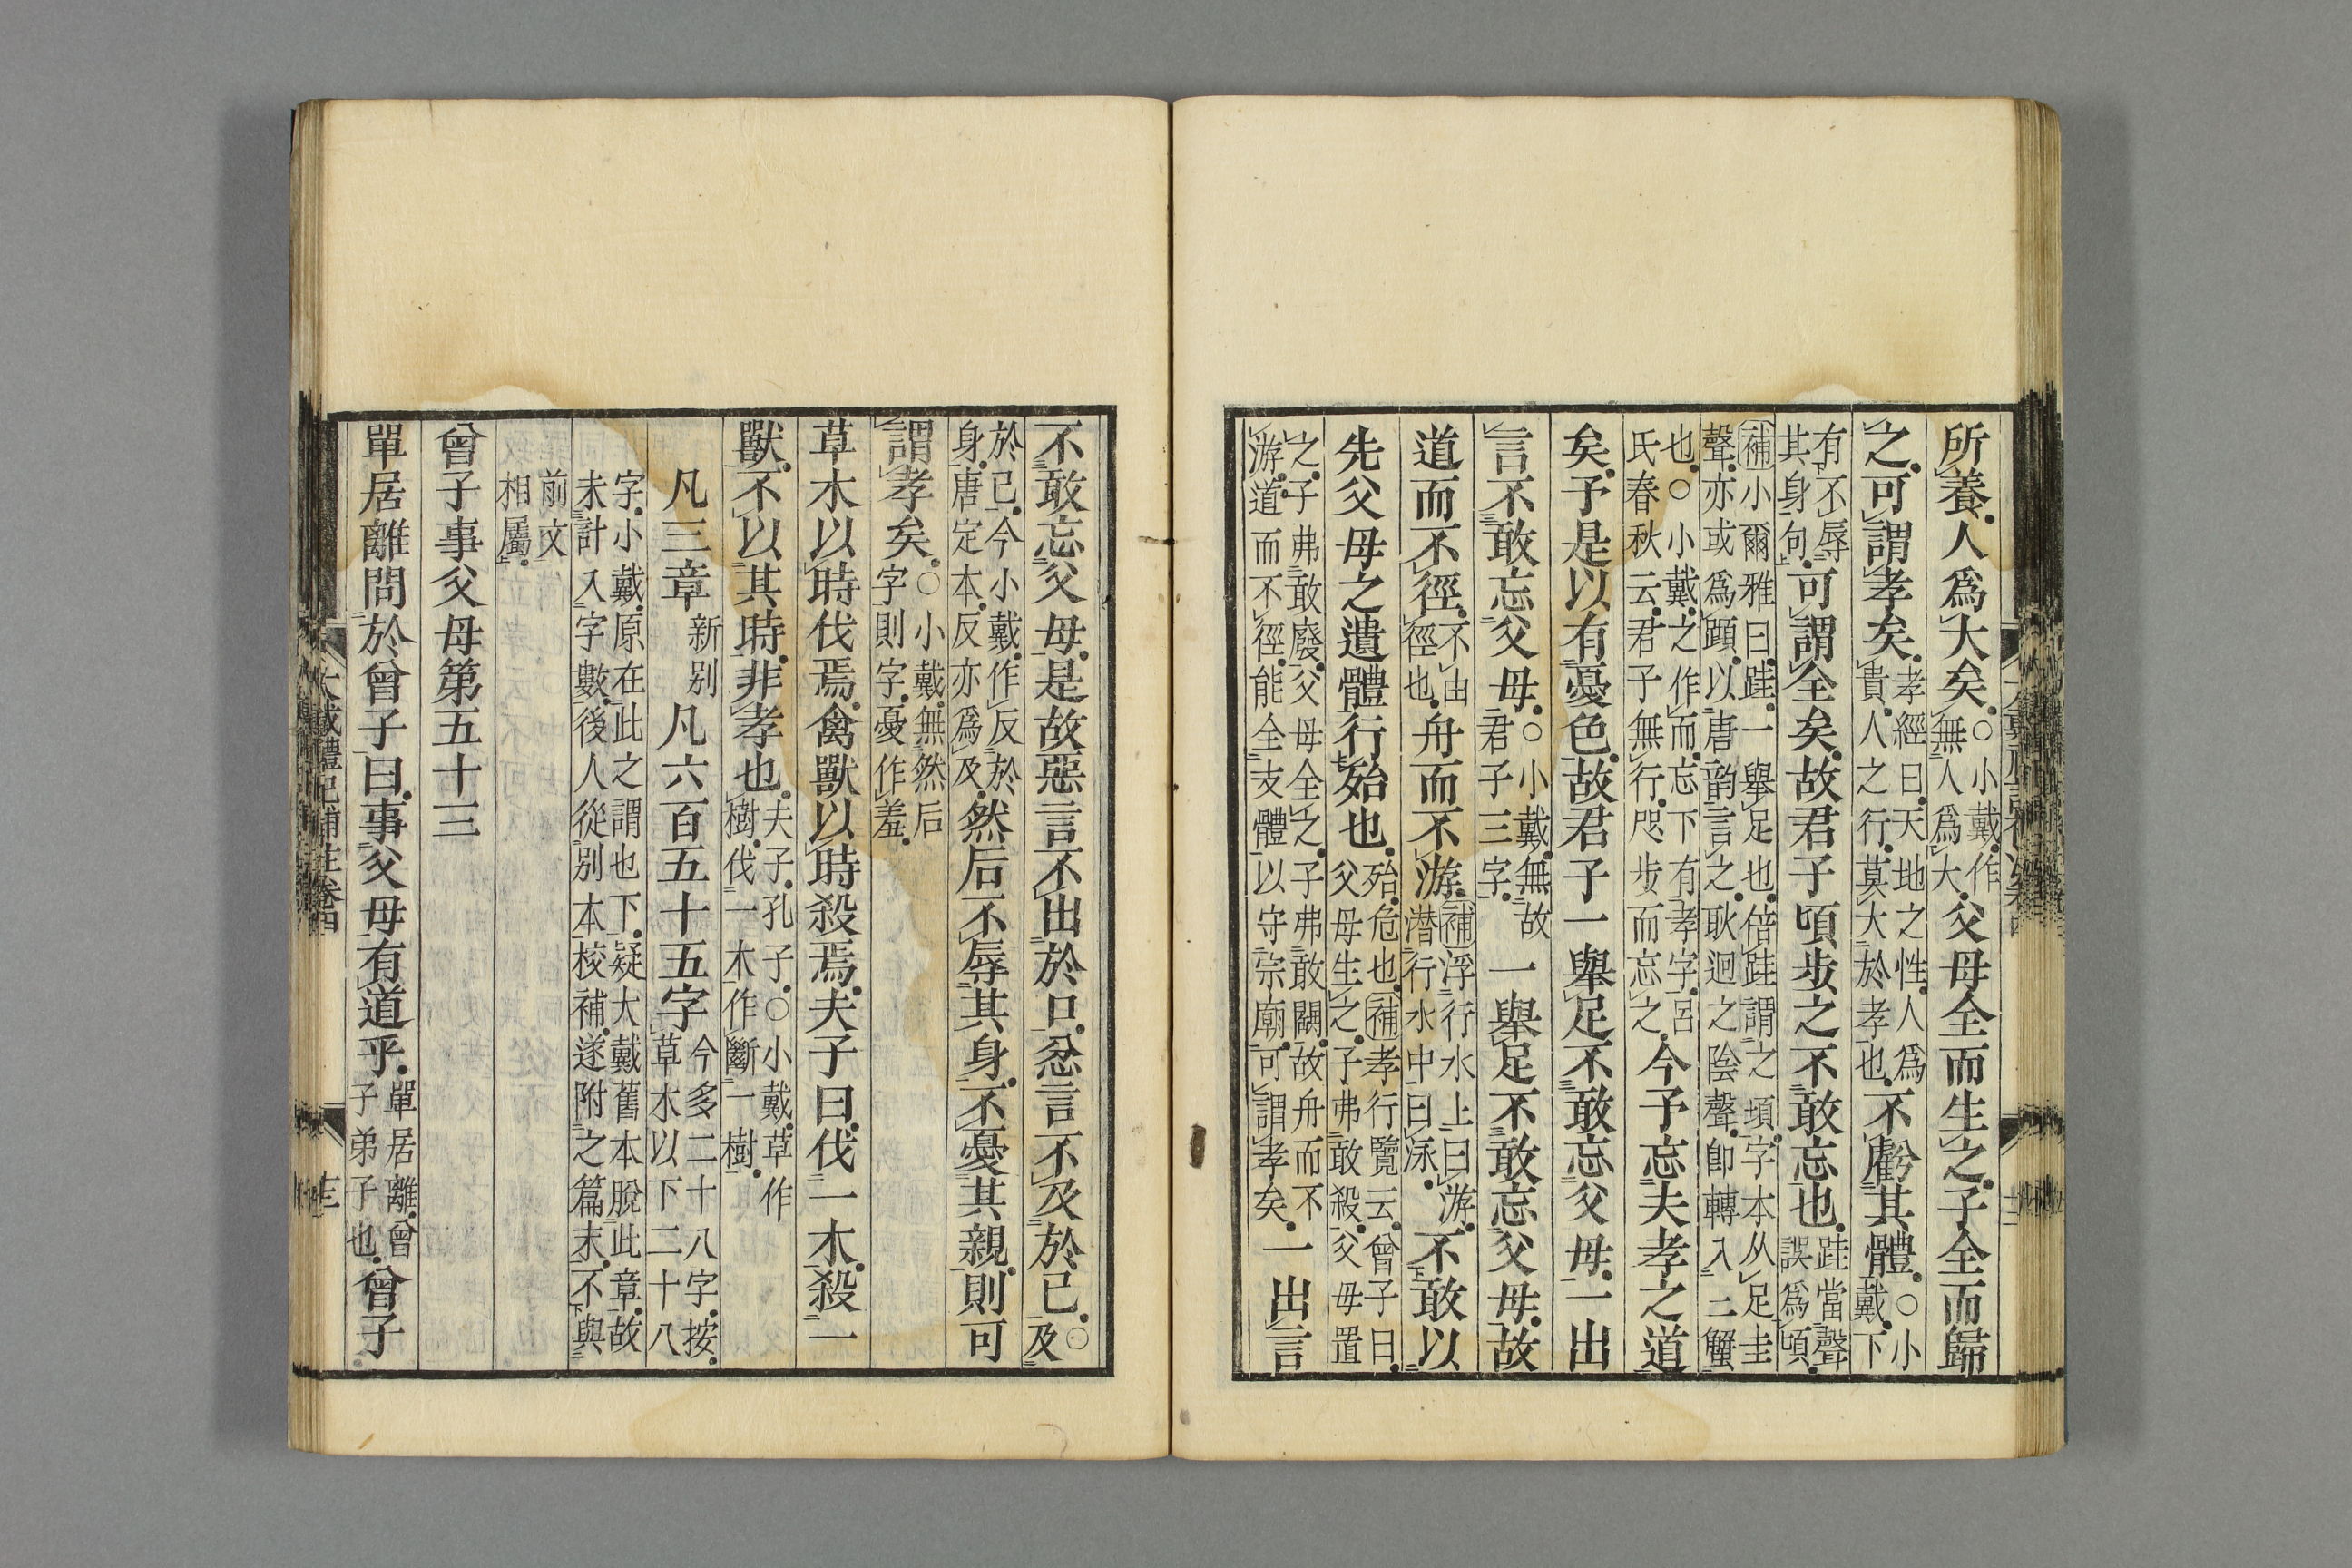 所養人爲大矣○小戴作無人爲大父母全而生之子全而歸
之可謂孝矣孝經曰天地之性人爲貴人之行莫大於孝也不虧其體○小戴下
有不辱其身句可謂全矣故君子頃步之不敢忘也跬當聲誤爲頃
補小爾雅曰跬一舉足也倍跬謂之頃字本从足圭聲亦或爲䠆以唐韵言之耿迥之陰聲卽轉入二蟹
也○小戴之作而忘下有孝字呂氏春秋云君子無行咫步而忘之今予忘夫孝之道
矣予是以有憂色故君子一舉足不敢忘父母一出
言不敢忘父母○小戴無故君子三字一舉足不敢忘父母故
道而不徑不由徑也舟而不游補浮行水上曰游潛行水中曰泳不敢以
先父母之遺體行殆也殆危也補孝行覽云曾子曰父母生之子弗敢殺父母置
之子弗敢廢父母全之子弗敢闕故舟而不游道而不徑能全支體以守宗廟可謂孝矣一出言
不敢忘父母是故惡言不出於口忿言不及於己○及
於己今小戴作反於身唐定本反亦爲及然后不辱其身不憂其親則可
謂孝矣○小戴無然后字則字憂作羞
草木以時伐焉禽獸以時殺焉夫子曰伐一木殺一
獸不以其時非孝也夫子孔子○小戴草作樹伐一木作斷一樹
凡三章新别凡六百五十五字今多二十八字按草木以下二十八
字小戴原在此之謂也下疑大戴舊本脫此章故未計入字數後人從别本校補遂附之篇末不與
前文相屬
曾子事父母第五十三
單居離問於曾子曰事父母有道乎單居離曾子弟子也曾子
大戴禮記補注卷四
十三